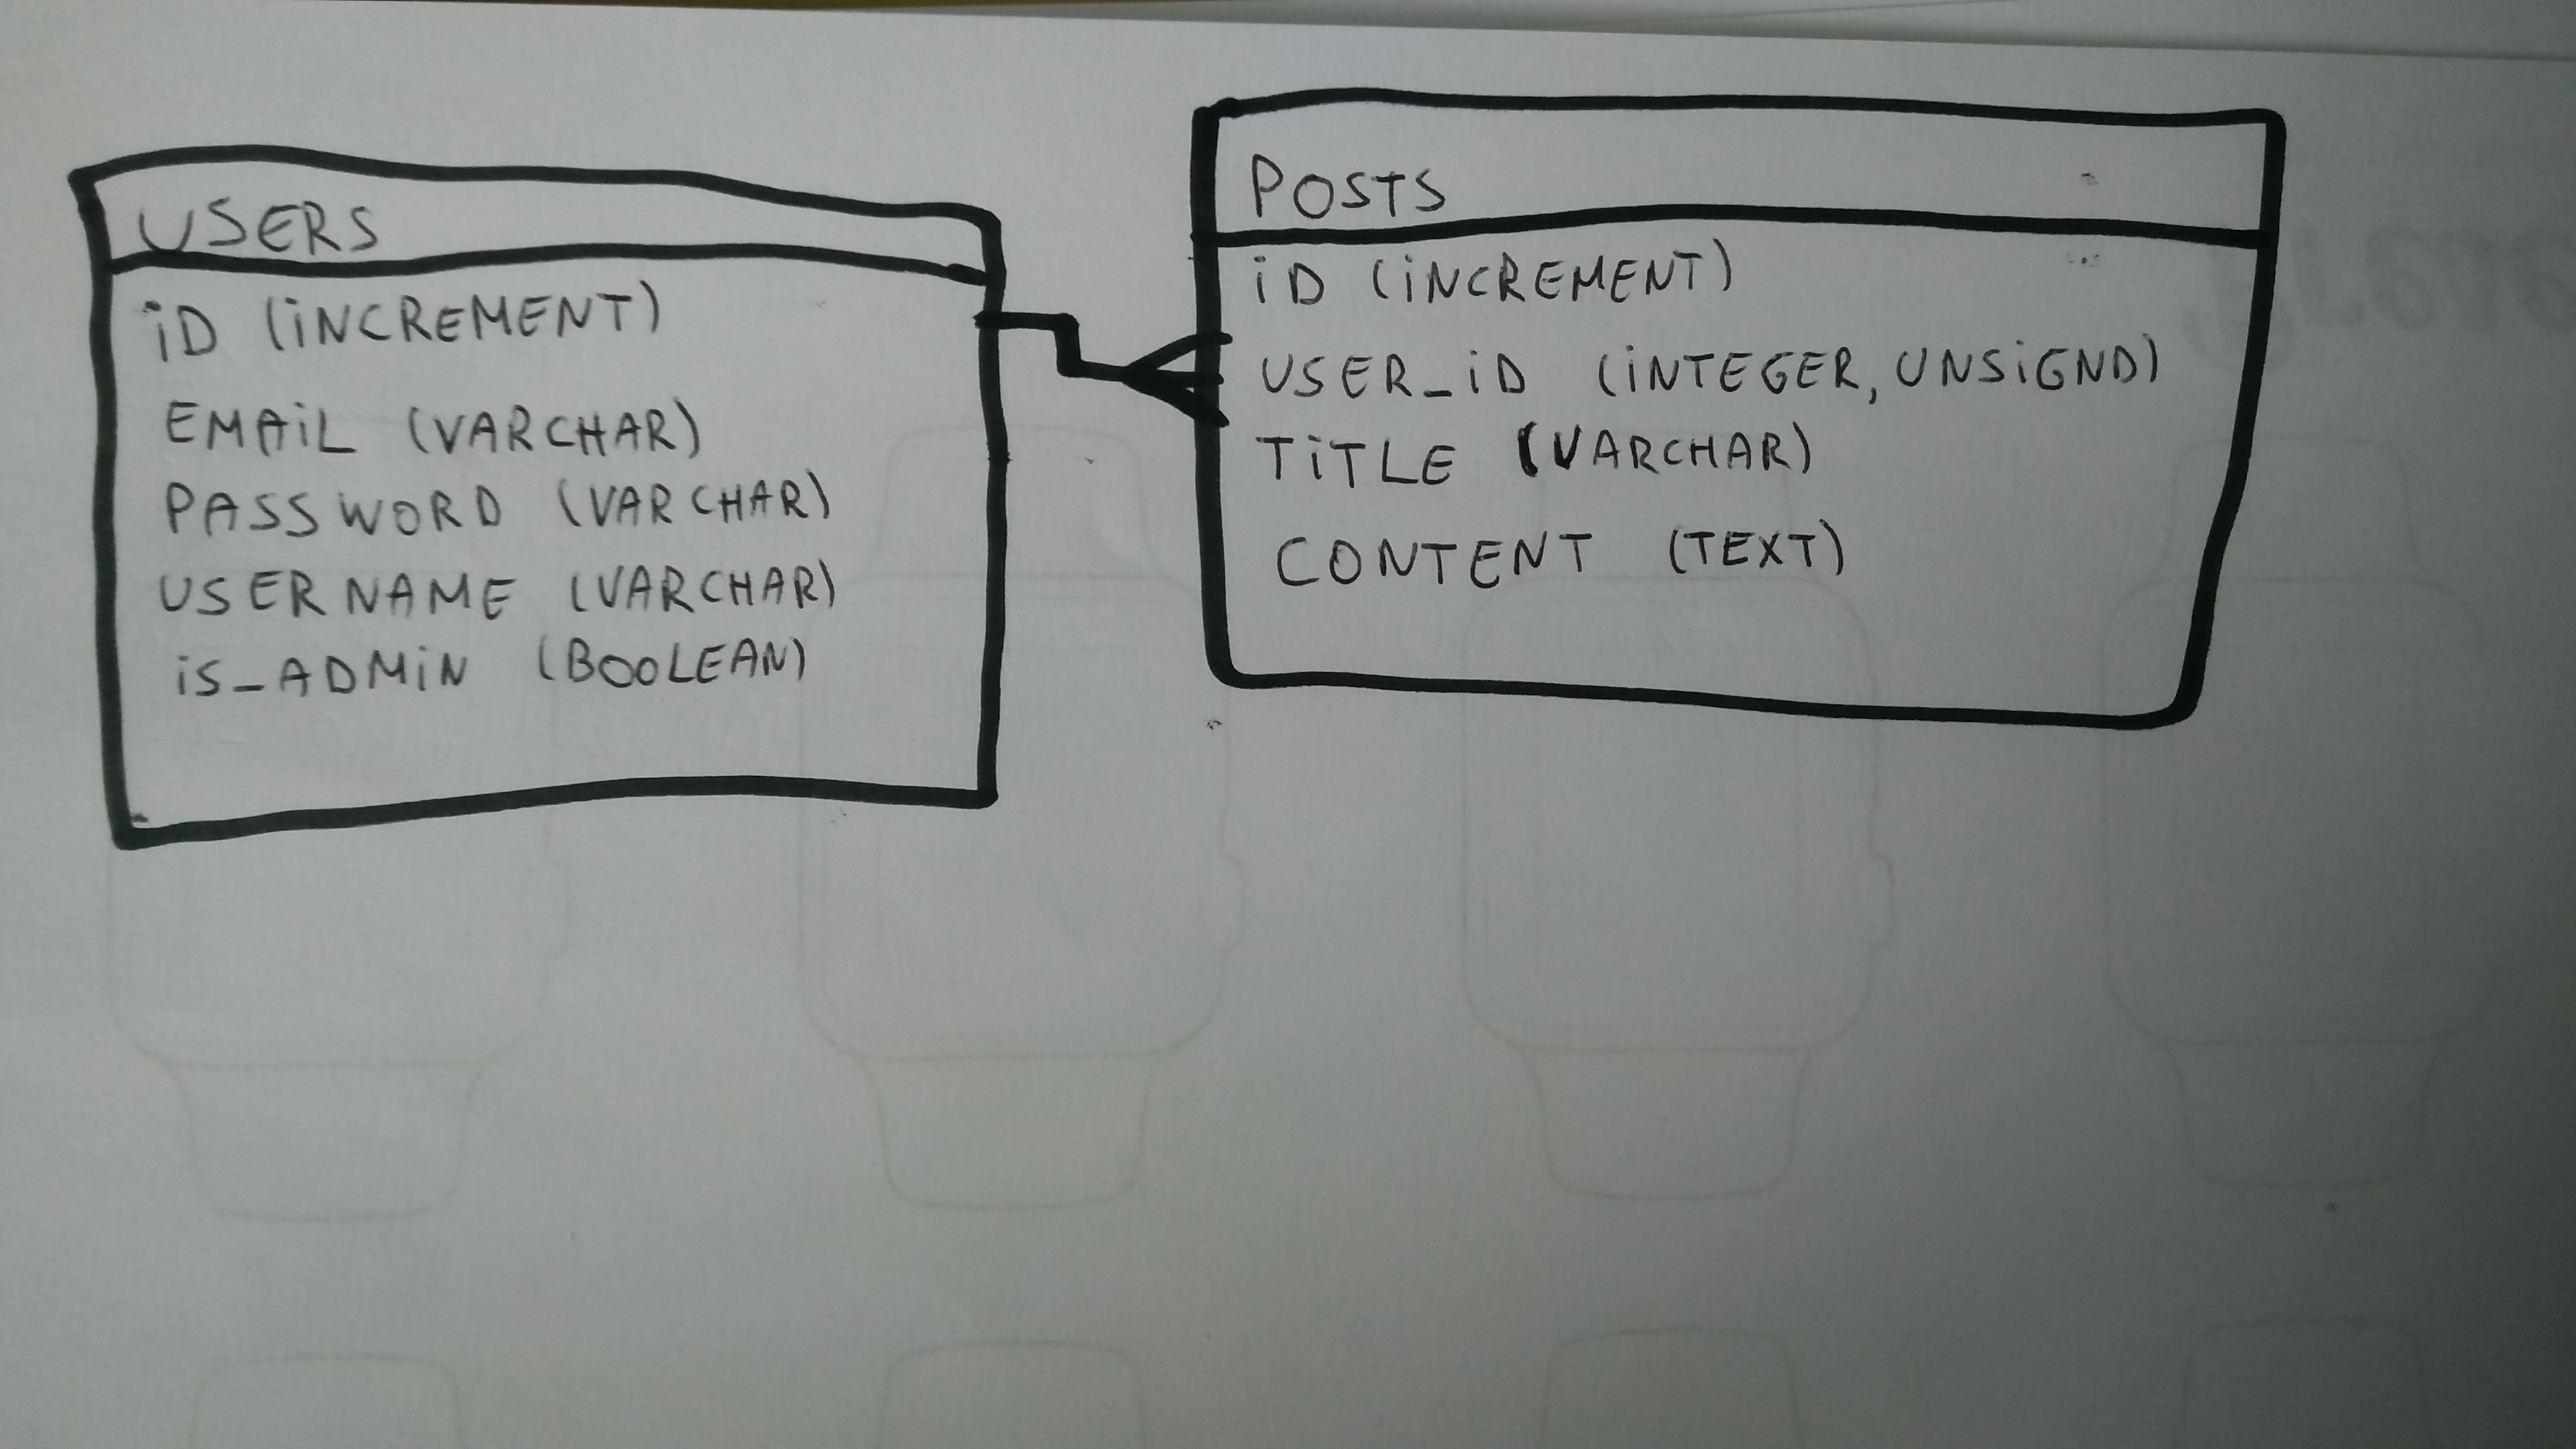 USERS
iD (iNCREMENT)
EMAiL (VARCHAR)
PASSWORD (VARCHAR)
USERNAME (VARCHAR)
iS_ADMiN (BOOLEAN)
POSTS
iD (iNCREMENT)
USER_iD (iNTEGER, UNSiGND)
TiTLE (VARCHAR)
CONTENT (TEXT)